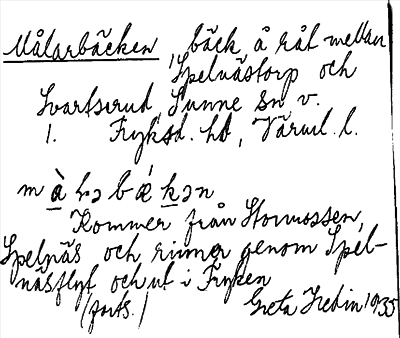 Målarbäcken, bäck å råt mellan
Spelnästorp och
Svartserud, Sunne sn v.
1. Fryksd. hd, Värml. l.
màl̥ɔbǽkɔn
Kommer från Stormossen,
Spelnäs och rinner genom Spel-
näsflyt och ut i Fryken
(forts.) Greta Hedin 1935